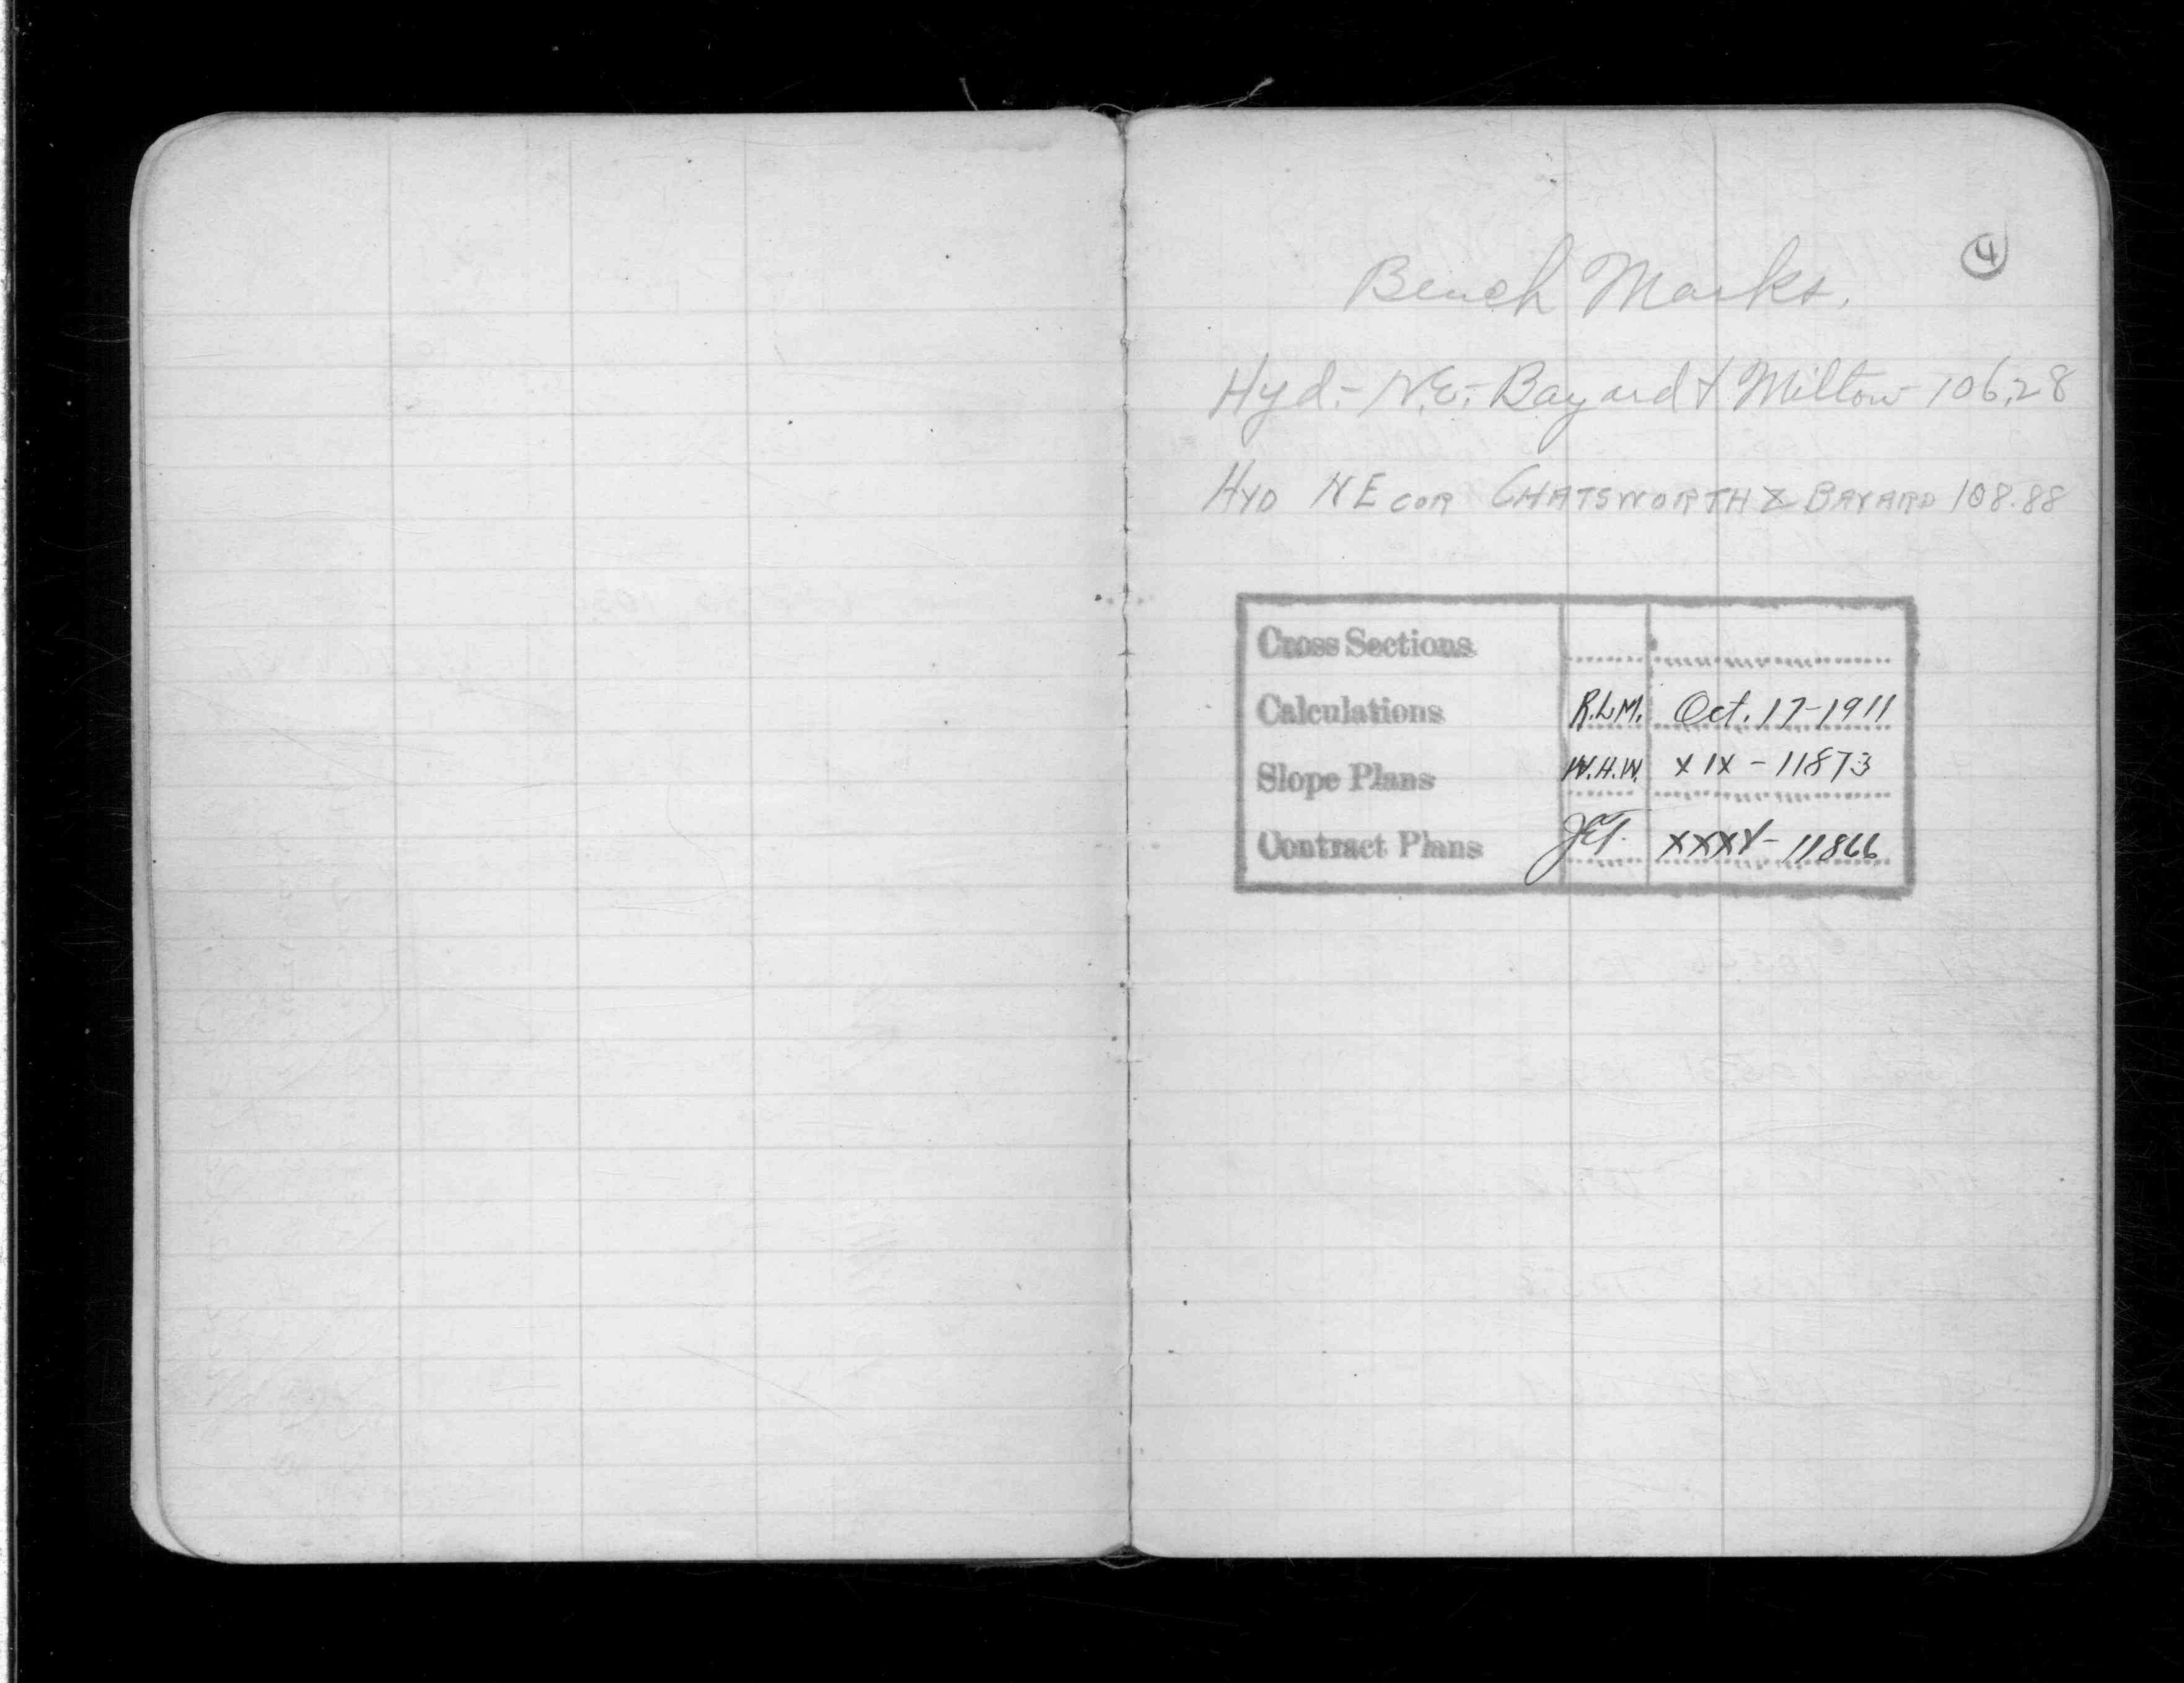 4
Bench Marks.
Hyd.- N.E.- Bayard & Milton 106.28
HYD NE COR CHATSWORTH & BAYARD 108.88
Cross Sections
Calculations R.L.M. Oct. 17-1911
Slope Plans W.H.W. XIX - 11873
Contract Plans XXXV - 11866